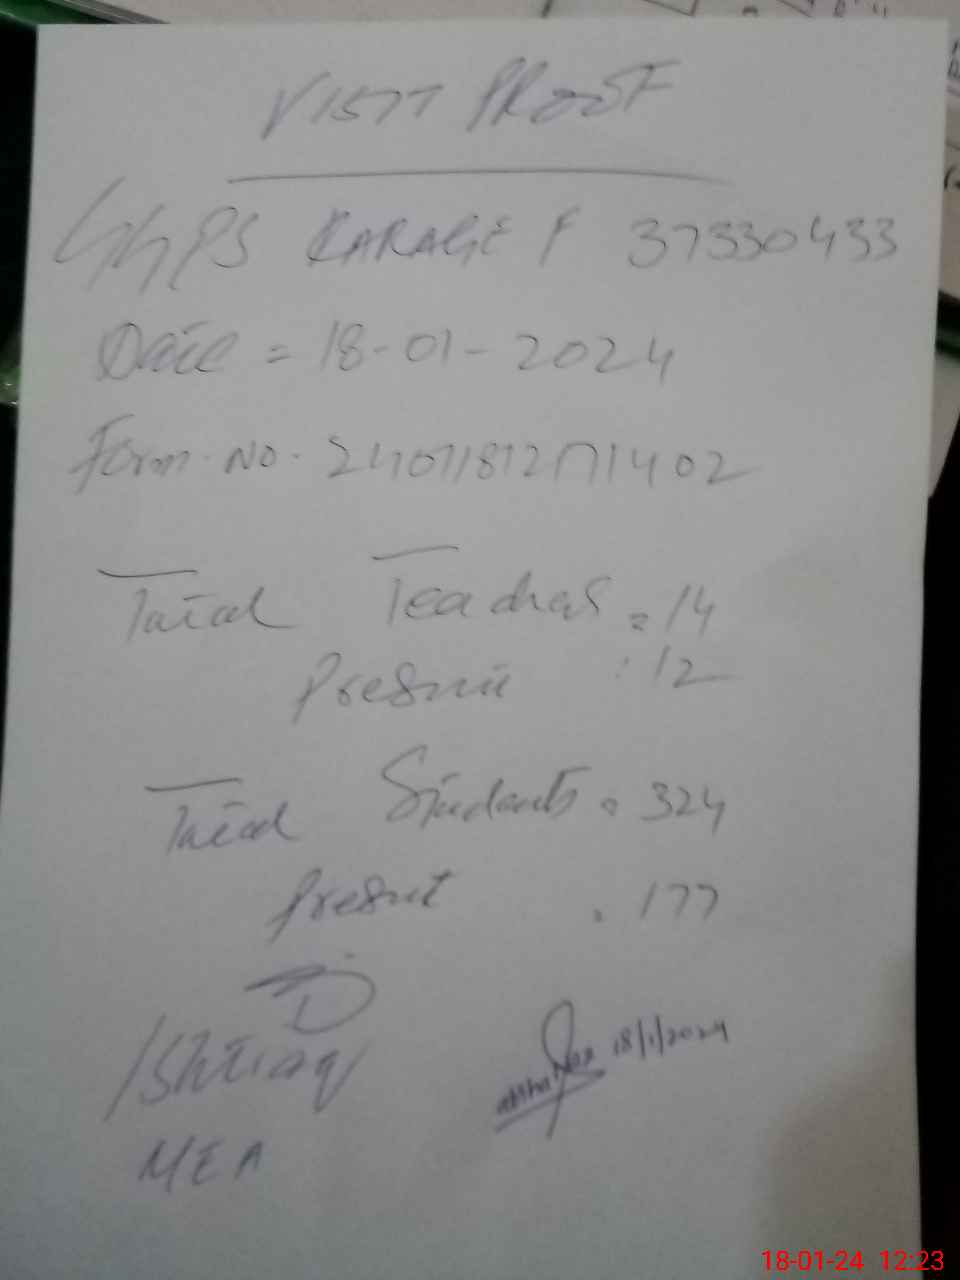 VISIT PROOF
GGPS KARAGE F 37330433
Date = 18-01-2024
Form No. 24011812171402
Total Teachers = 14
Present : 12
Total Students = 324
Present = 177
Ishtiaq
MEA
18/1/2024
18-01-24 12:23